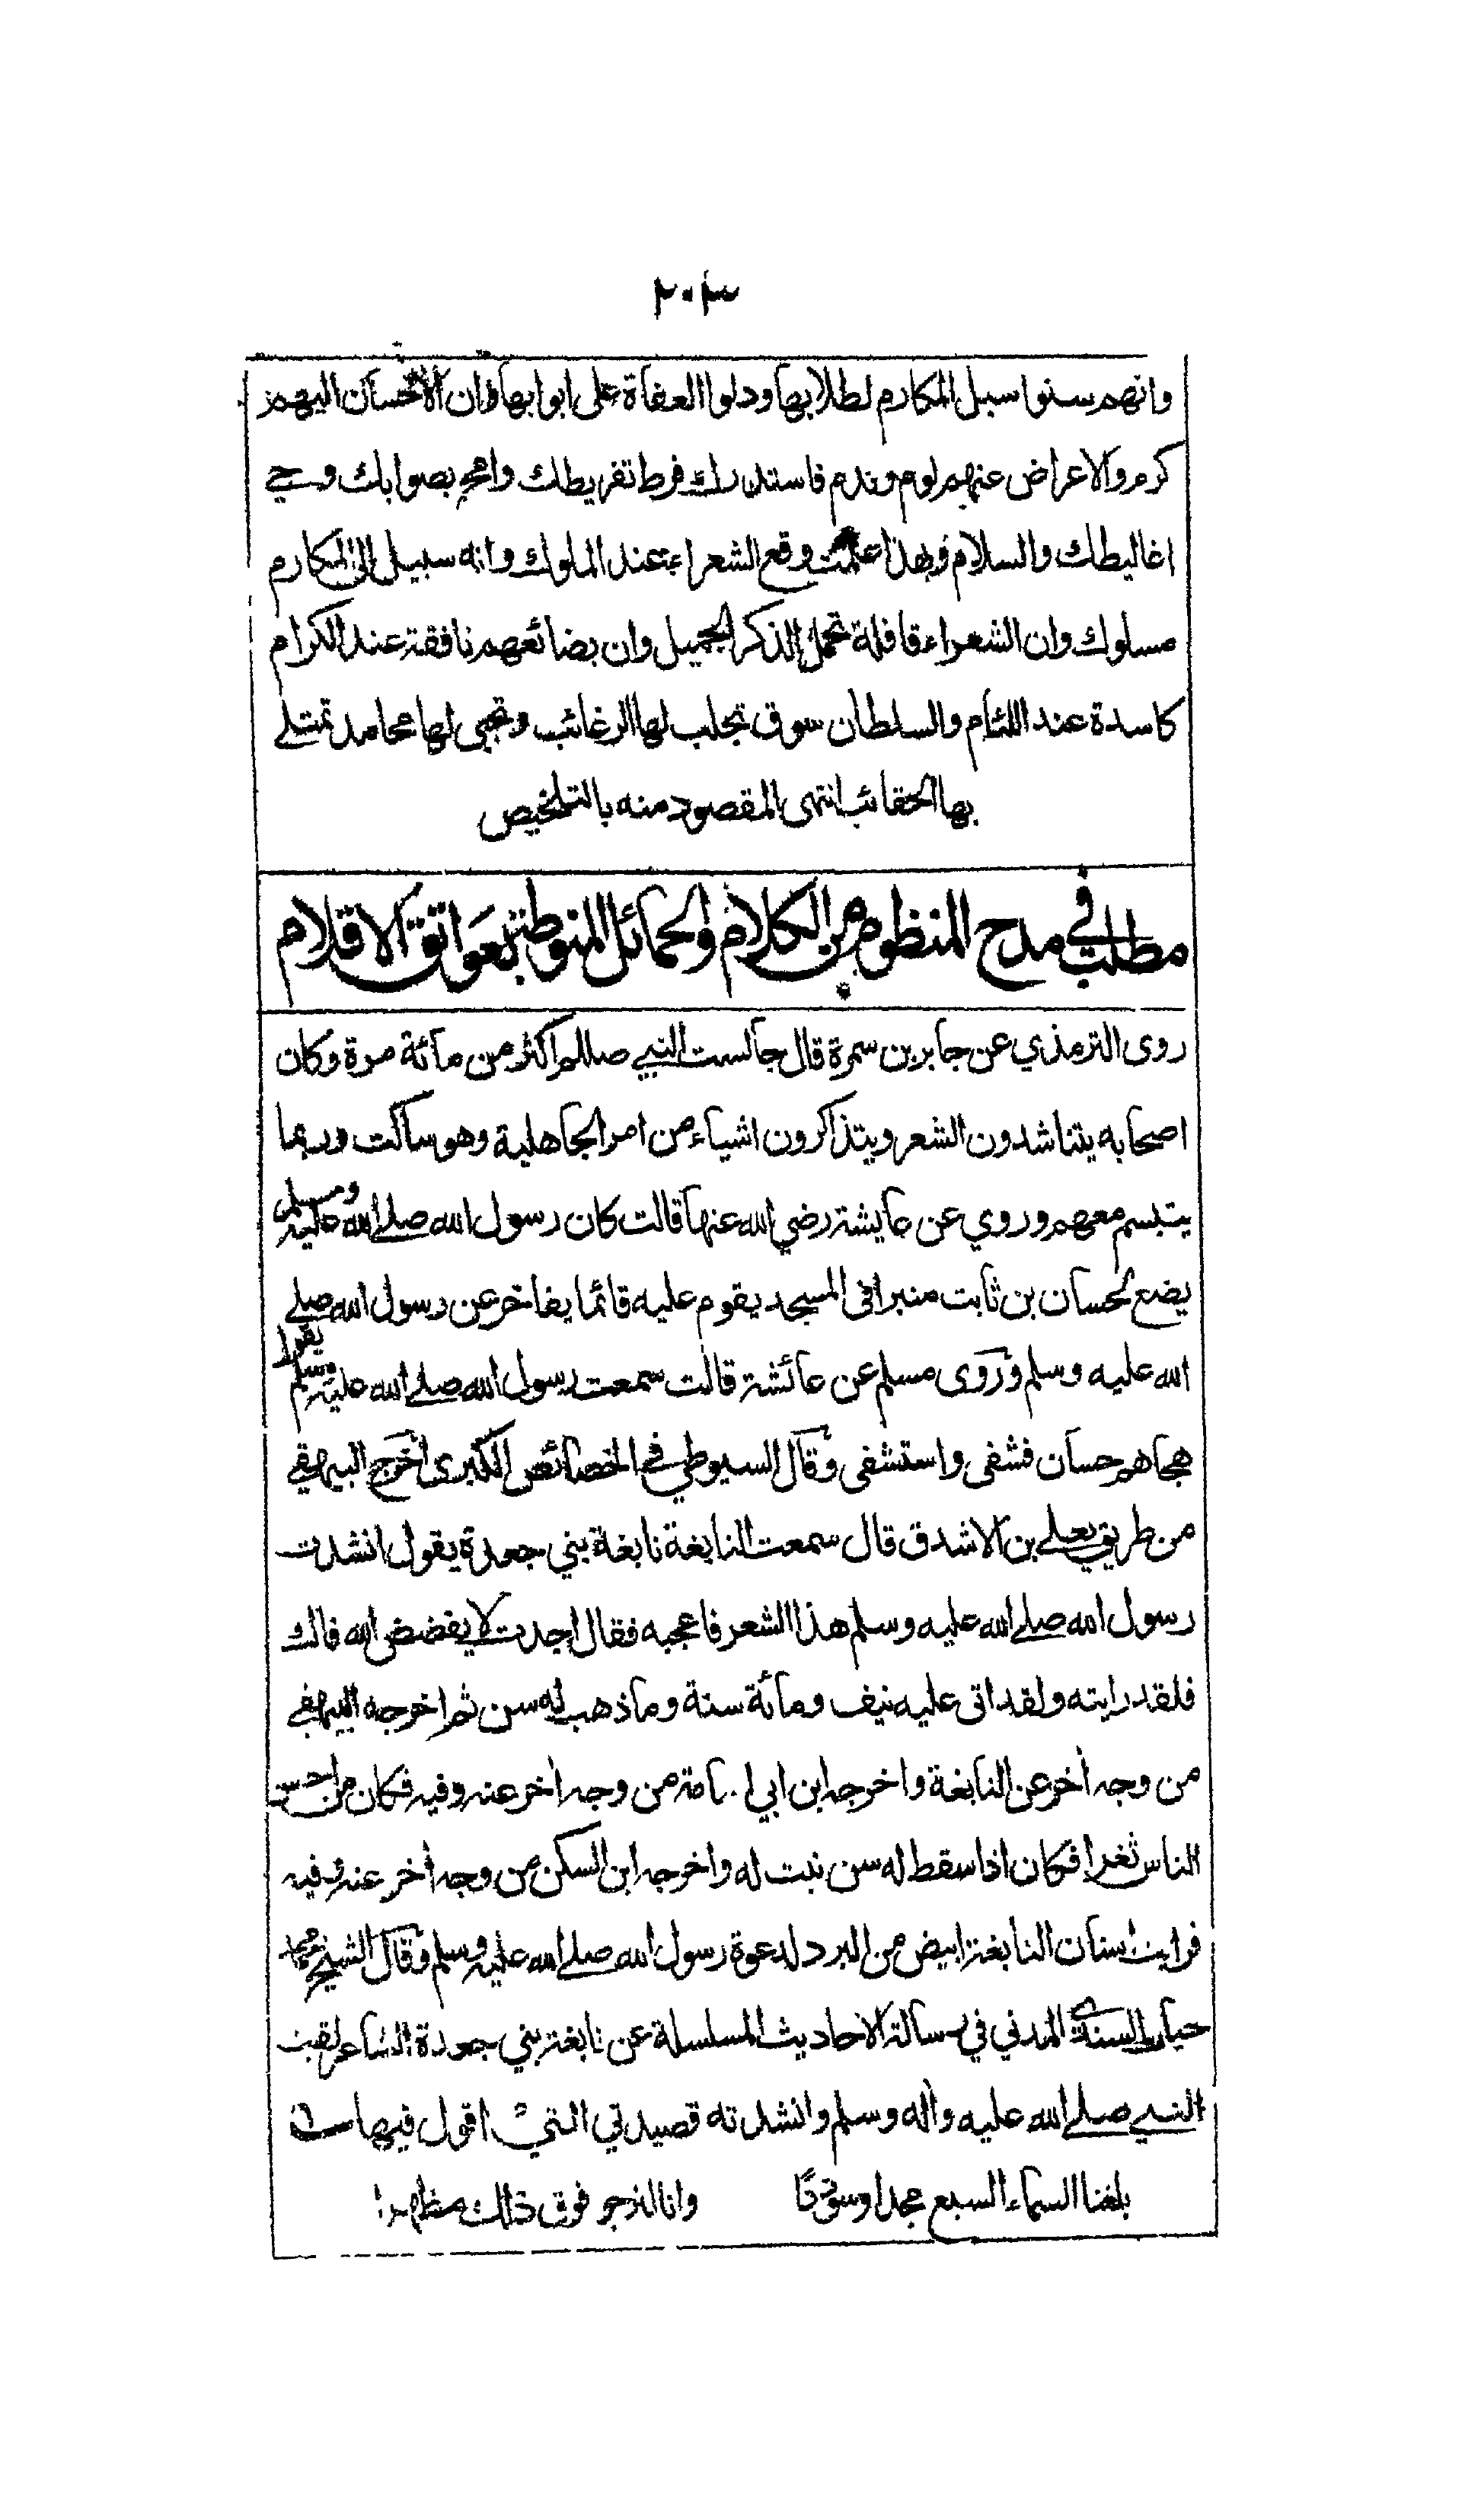 ٢٠٣
وانهم سنوا سبل المكارم لطلابها ودلوا العفاة على ابوابها وان الاحسان اليهم
كرم والاعراض عنهم لوم وندم فاستدرك فرط تفريطك وامح بصوابك وحي
اغاليطك والسلام وبهذا علمت وقع الشعراء عند الملوك وانه سبيل الى المكارم
مسلوك وان الشعراء قافلة تحمل الذكر الجميل وان بضائعهم نافقة عند الكرام
كاسدة عند اللئام والسلطان سوق تجلب لها الرغائب وتجبى لها محامد تمتلي
بها الحقائب انتهى المقصود منه بالتلخيص
مطلب في مدح المنظوم من الكلام والحمائل المنوطة بعواتق الاقلام
روى الترمذي عن جابر بن سمرة قال جالست النبي صللم اكثر من مائة مرة وكان
اصحابه يتناشدون الشعر ويتذاكرون اشياء من امر الجاهلية وهو ساكت وربما
يتبسم معهم وروي عن عايشة رضي الله عنها قالت كان رسول الله صلى الله عليه وسلم
يضع لحسان بن ثابت منبرا في المسجد يقوم عليه قائما يفاخر عن رسول الله صلى
الله عليه وسلم وروى مسلم عن عائشة قالت سمعت رسول الله صلى الله عليه وسلم يقول
هجاهم حسان فشفى واستشفى وقال السيوطي في الخصائص الكبرى اخرج البيهقي
من طريق يعلى بن الاشدق قال سمعت النابغة نابغة بني جعدة يقول انشدت
رسول الله صلى الله عليه وسلم هذا الشعر فاعجبه فقال اجدت لا يفضض الله فاك
فلقد رايته ولقد اتى عليه نيف ومائة سنة وما ذهب له سن ثم اخرجه البيهقي
من وجه اخر عن النابغة واخرجه ابن ابي اسامة من وجه اخر عنه وفيه فكان من احسن
الناس ثغرا فكان اذا سقط له سن نبت له واخرجه ابن السكن من وجه اخر عنه وفيه
فرايت اسنان النابغة ابيض من البرد لدعوة رسول الله صلى الله عليه وسلم وقال الشيخ محمد
حياة السندي المدني في رسالة الاحاديث المسلسلة عن نابغة بني جعدة الشاعر لقيت
النبي صلى الله عليه واله وسلم وانشدته قصيدتي التي اقول فيها
بلغنا السماء السبع مجدا وسوددًا وانا لنرجو فوق ذلك مظهرا